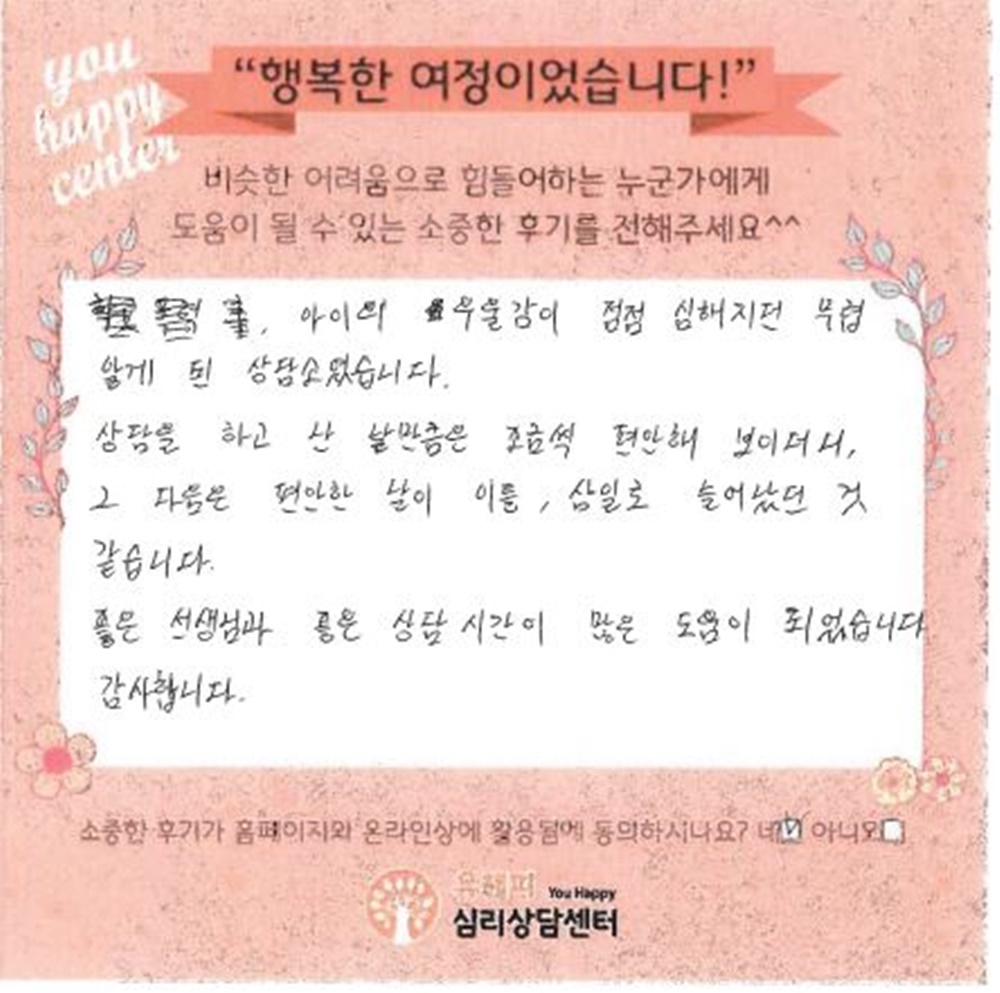 you
happy
center
“행복한 여정이었습니다!”
비슷한 어려움으로 힘들어하는 누군가에게
도움이 될 수 있는 소중한 후기를 전해주세요^^
, 아이의 우울감이 점점 심해지던 무렵
알게 된 상담소였습니다.
상담을 하고 난 날만큼은 조금씩 편안해 보이더니,
그 다음은 편안한 날이 이틀, 삼일로 늘어났던 것
같습니다.
좋은 선생님과 좋은 상담 시간이 많은 도움이 되었습니다
감사합니다.
소중한 후기가 홈페이지와 온라인상에 활용됨에 동의하시나요? 네 아니오
유해피 You Happy
심리상담센터